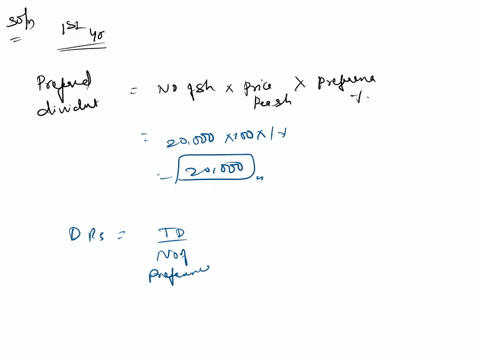 soln 1st yr
Prefered dividut = No of sh × price Per sh × preference %
= 20,000 × 100 × 1%
= 20,000 "
DPs = TD / No of Preference